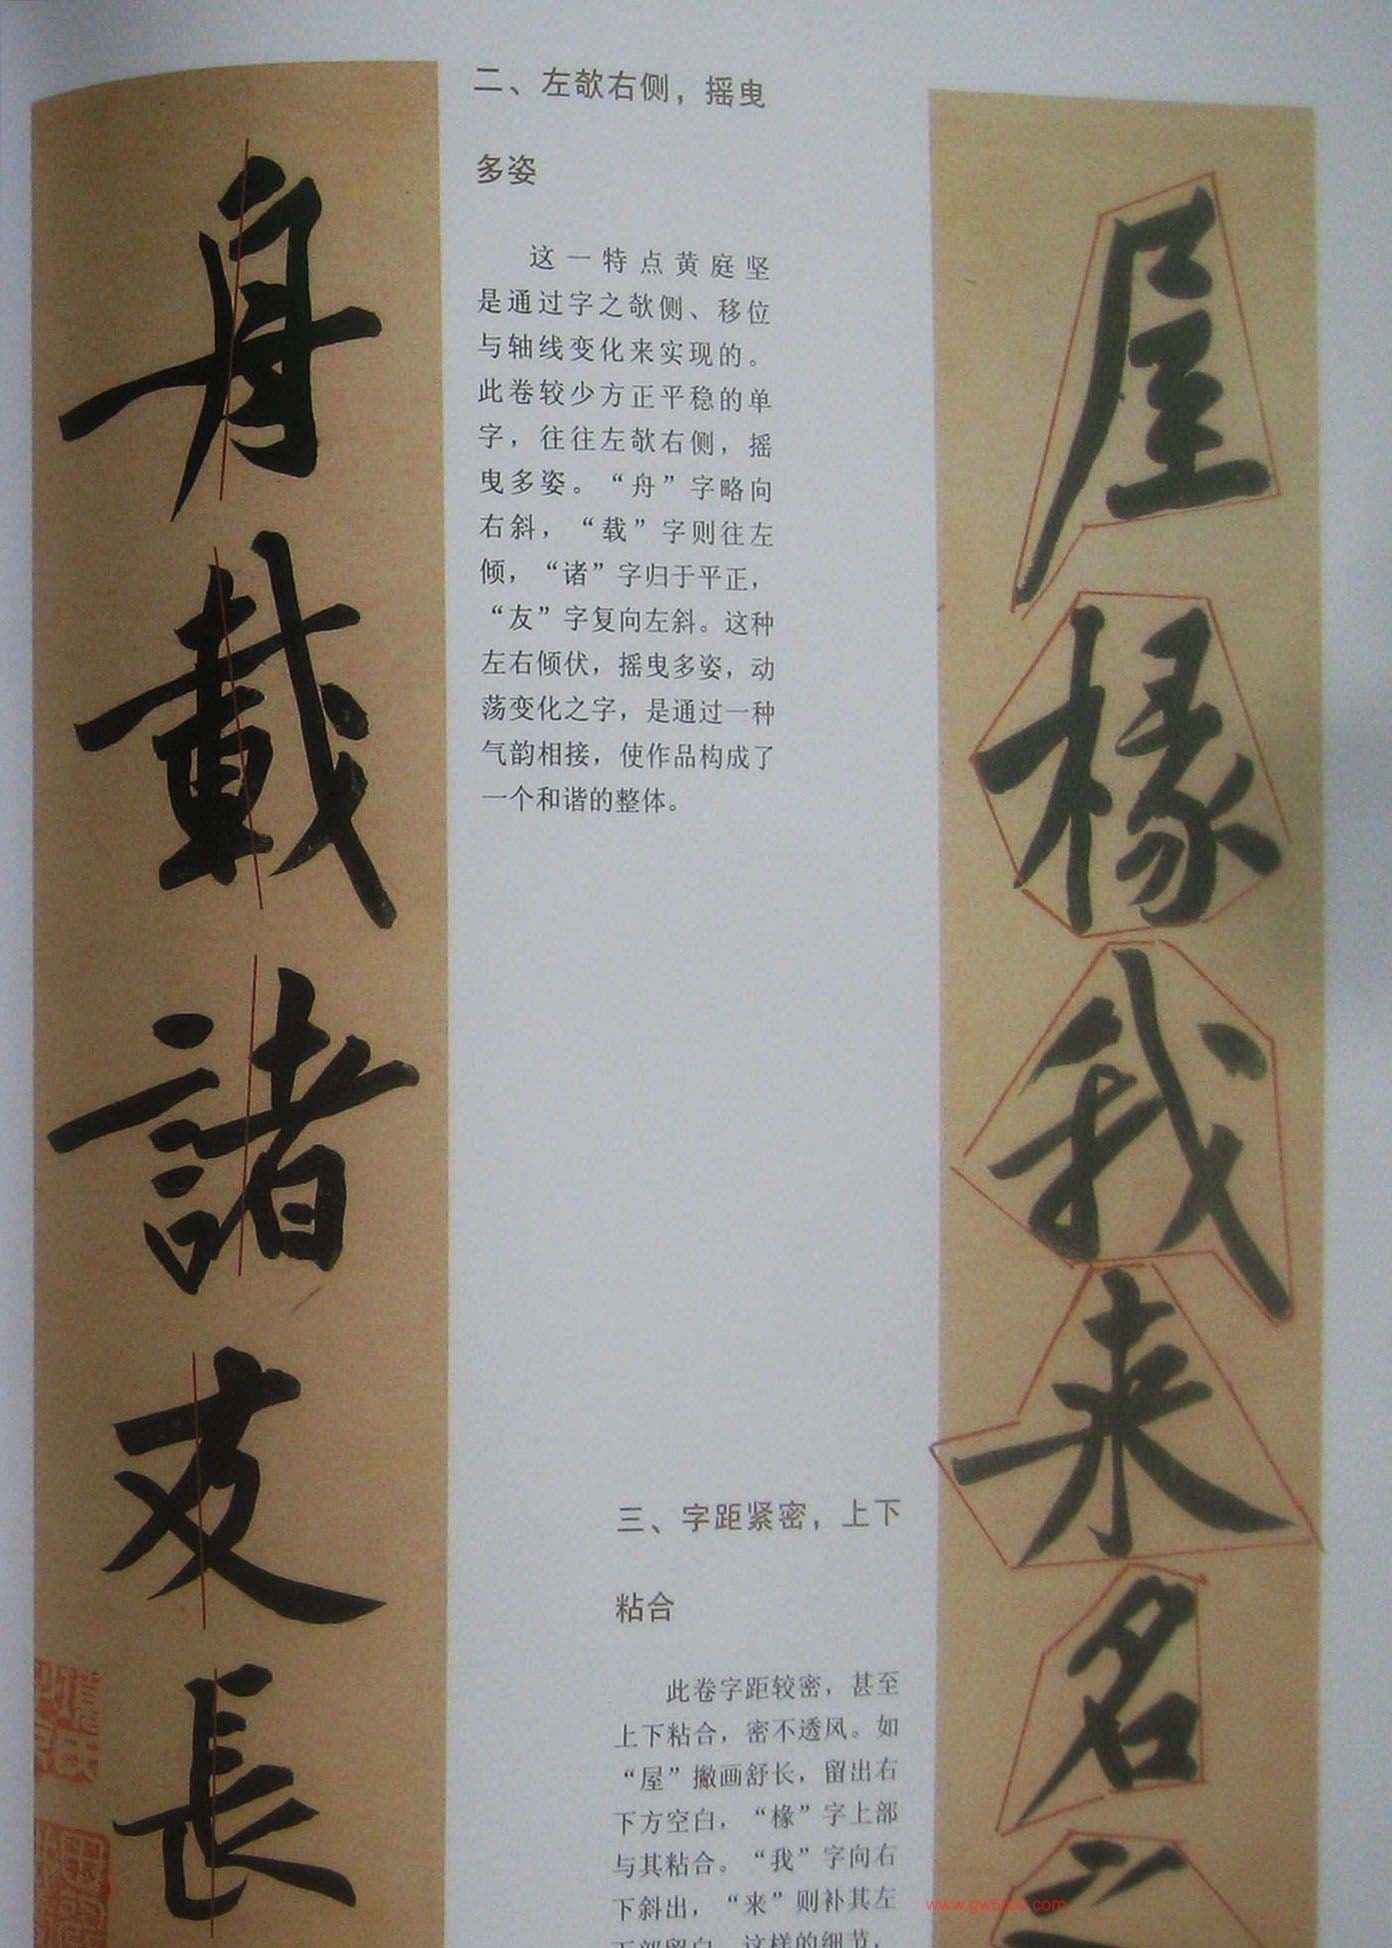 舟
載
諸
友
長
二、左欹右侧，摇曳
多姿
这一特点黄庭坚
是通过字之欹侧、移位
与轴线变化来实现的。
此卷较少方正平稳的单
字，往往左欹右侧，摇
曳多姿。“舟”字略向
右斜，“载”字则往左
倾，“诸”字归于平正，
“友”字复向左斜。这种
左右倾伏，摇曳多姿，动
荡变化之字，是通过一种
气韵相接，使作品构成了
一个和谐的整体。
三、字距紧密，上下
粘合
此卷字距较密，甚至
上下粘合，密不透风。如
“屋”撇画舒长，留出右
下方空白，“椽”字上部
与其粘合。“我”字向右
下斜出，“来”则补其左
下部留白，这样的细节，
屋
椽
我
来
名
之